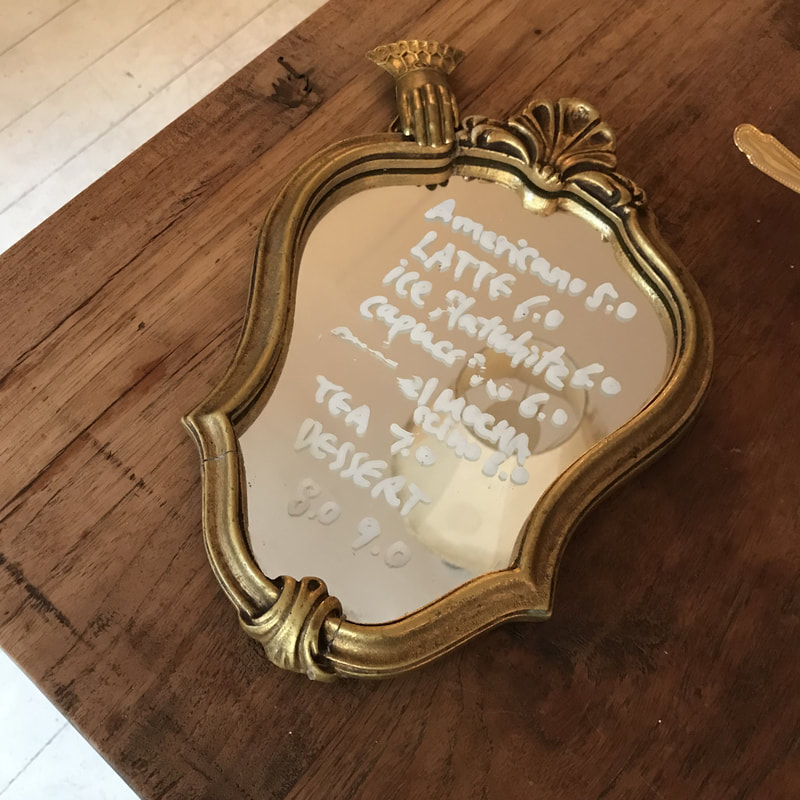 Americano 5.0
LATTE 6.0
ice flatwhite 6.0
6.0
MOCHA
TEA 7.0
DESSERT
8.0 9.0